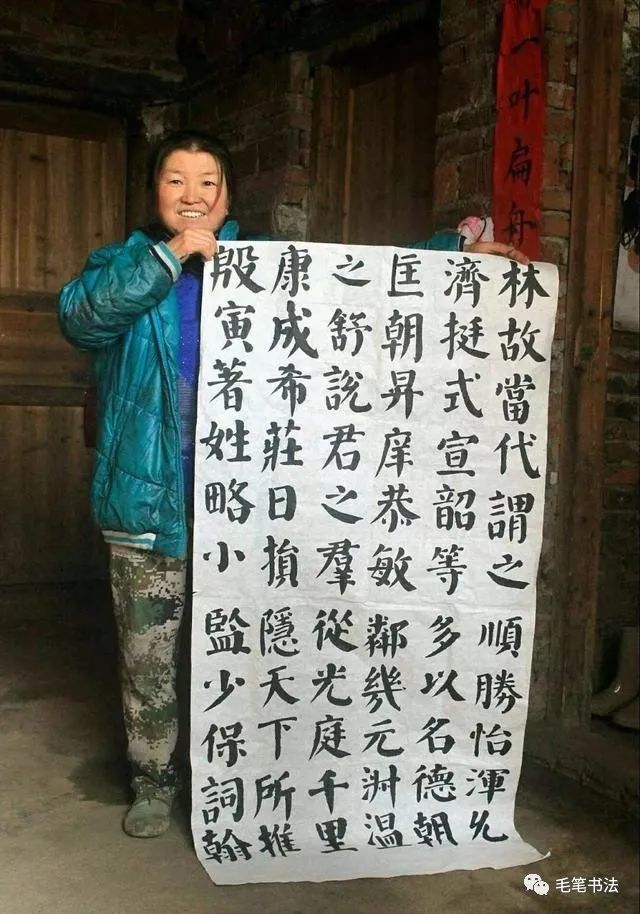 一叶扁舟
林故當代謂之順勝怡渾允
濟挺式宣韶等多以名德朝
匡朝昇庠恭敏鄰幾元淵溫
之舒說君之羣從光庭千里
康成希莊日損隱天下所推
殷寅著姓略小監少保詞翰
毛笔书法